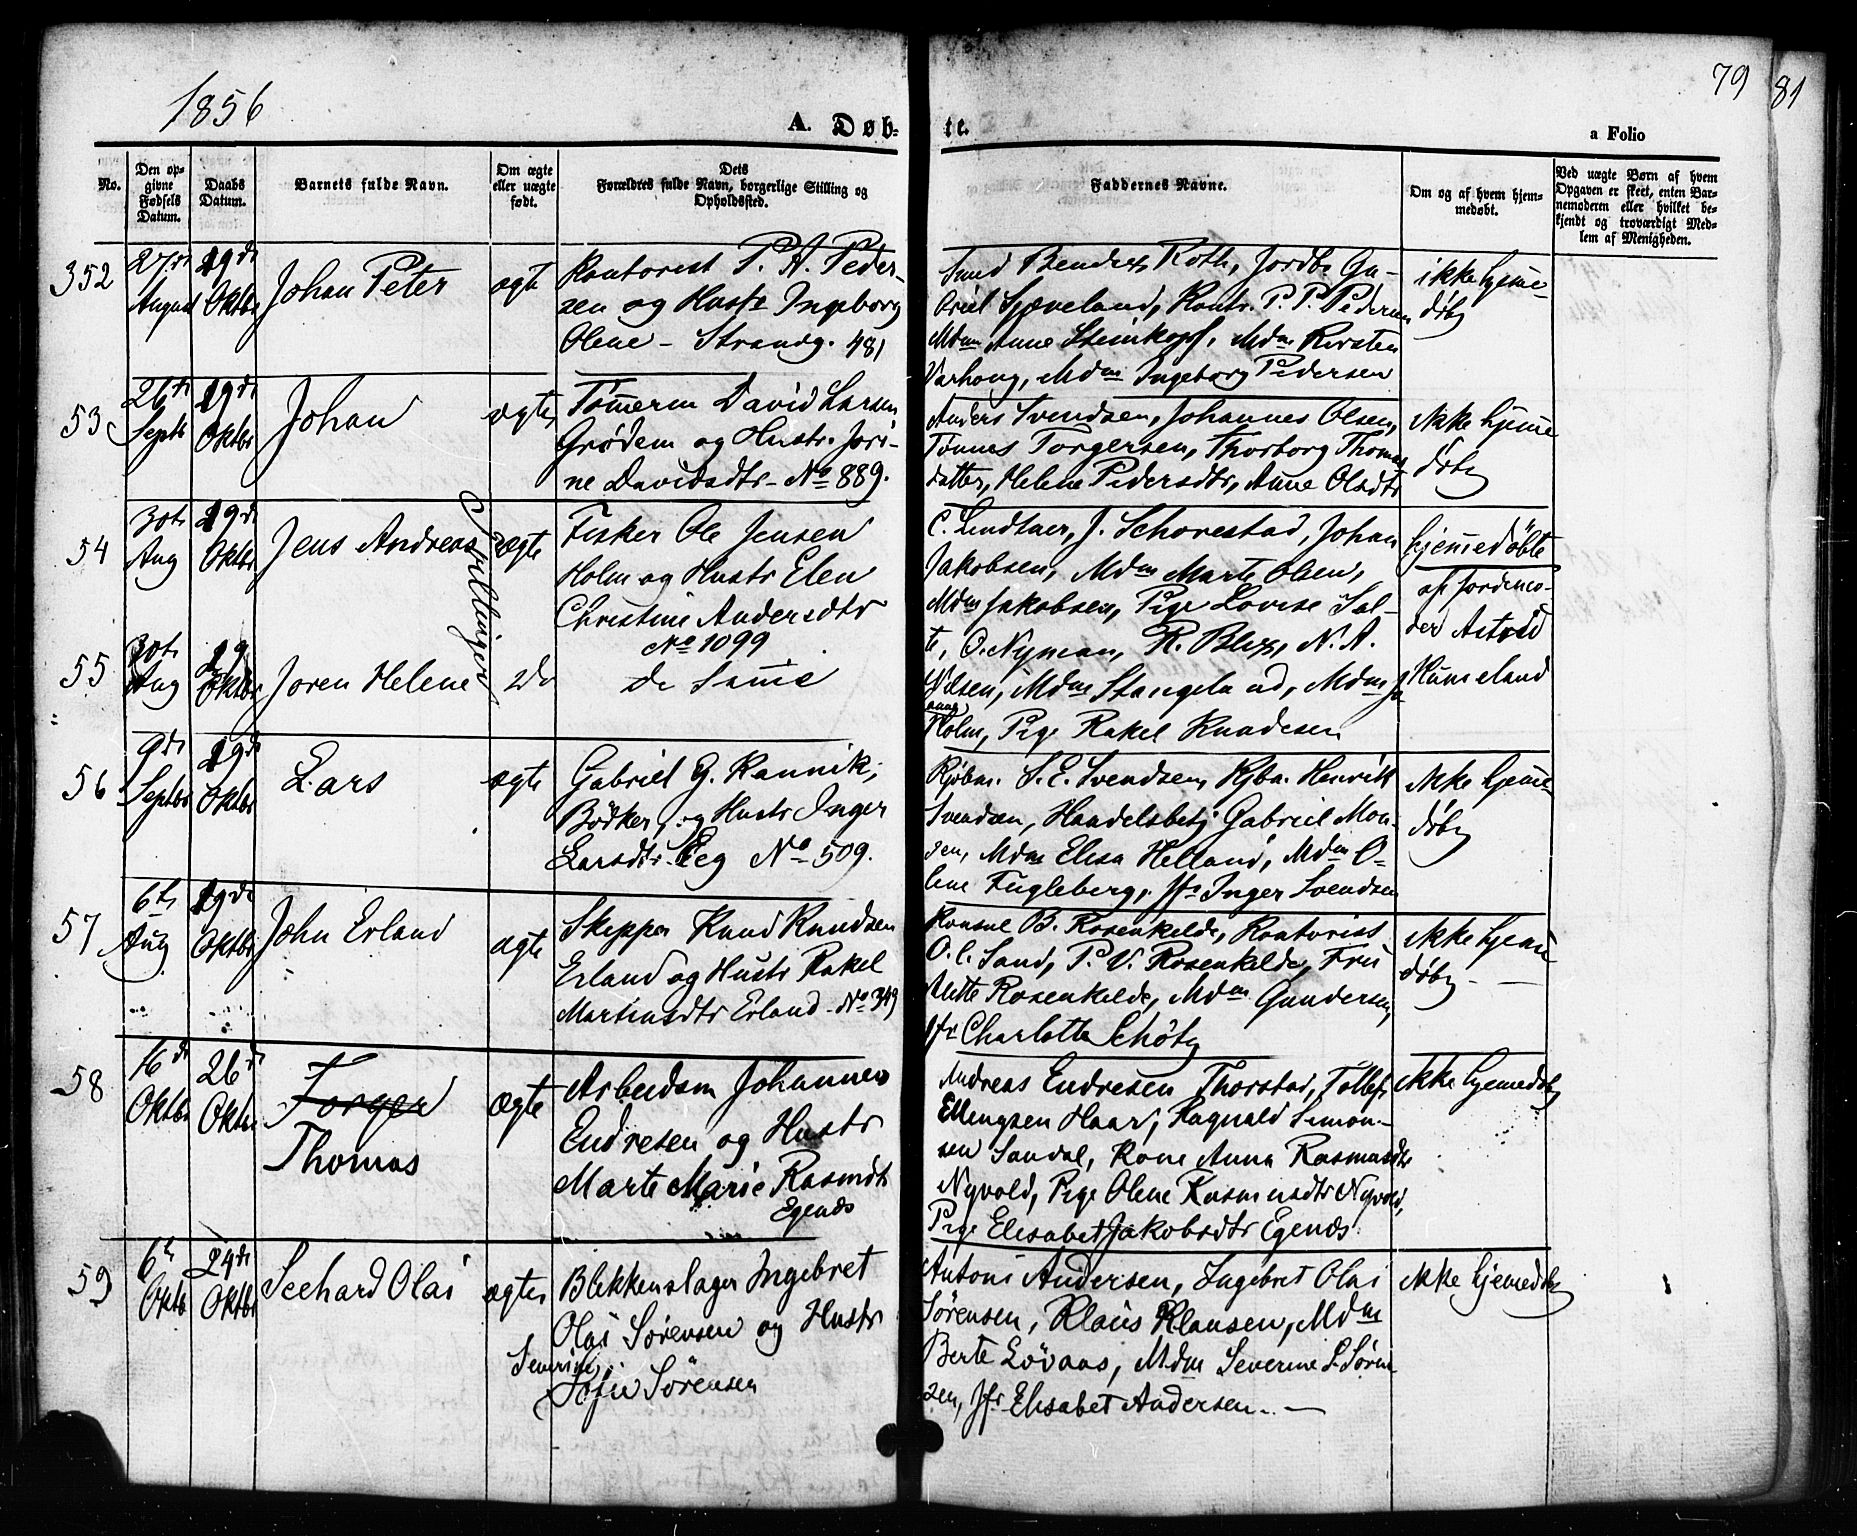 1856
79
81
A. Døb-
te.
a Folio
No.
Den op-
givne
Fødsels
Datum.
Daabs
Datum.
Barnets fulde Navn.
Om ægte
eller uægte
født.
Dets
Forældres fulde Navn, borgerlige Stilling og
Opholdssted.
Faddernes Navne.
Om og af hvem hjem-
medøbt.
Ved uægte Børn af hvem
Opgaven er skeet, enten Bar-
nemoderen eller hvilket be-
kjendt og troværdigt Med-
lem af Menigheden.
352
27de
August
19de
Oktbr
Johan Peter
ægte
Kontorist P. A. Peder-
sen og Hustr Ingeborg
Olene - Strandg. 481
Roth, Jordbr Ga-
briel Sjæveland, Kontr. P. P. Pedersen
Mdm Anne Steinkopf, Mdm Kirsten
Varhoug, Mdm Ingeborg Pedersen
ikke hjemme-
døbt
53
26de
Septb
19de
Oktbr
Johan
ægte
Tømmerm David Larsen
Grødem og Hustr. Jori-
ne Davidsdtr - No 889.
Anders Svendsen, Johannes Olsen,
Tønnes Torgersen, Thorborg Thomas
datter, Helene Pedersdtr, Anne Olsdtr
ikke hjemme
døbt
54
30te
Aug
19de
Oktbr
Jens Andreas
Tvillinger
ægte
Fisker Ole Jensen
Holm og Hustr Elen
Christine Andersdtr
No 1099
C. Lindtner, J. Schorestad, Johan
Jakobsen, Mdm Marte Olsen,
Mdm Jakobsen, Pige Lovise Sal-
te, O. Nyman, R. Blix, N. A.
hjemmedøbte
af Jordemo-
der Astrid
Kumeland
55
30te
Aug
19
Oktbr
Joren Helene
do
De Samme
Nilsen, Mdm Stangeland, Mdm
Holm, Pige Rakel Knudsen
56
9de
Septbr
19de
Oktbr
Lars
ægte
Gabriel G. Rannik,
Bødker, og Hustr Inger
Larsdtr Eeg No 509.
Kjøbm. S. E. Svendsen, Kjbm. Henrik
Svendsen, Handelsbetj Gabriel Mon-
sen, Mdm Elisa Helland, Mdm O-
lene Fugleberg, Jfr Inger Svendsen
ikke hjemme-
døbt
57
6te
Aug
19de
Oktbr
John Erland
ægte
Skipper Knud Knudsen
Erland og Hustr Rakel
Martinsdtr Erland - No 349
Konsul B. Rosenkilde, Kontorist
O. C. Sand, P. V. Rosenkilde, Fru
Mette Rosenkilde, Mdm Gundersen,
Jfr Charlotte Schøtz
ikke hjemme
døbt
58
16de
Oktbr
26de
Oktbr
Torger
Thomas
ægte
Arbeidsm Johannes
Endresen og Hustr
Marte Marie Rasmdtr
Egends
Andreas Endresen Thorstad, Tollef
Ellingsen Haar, Ragnald Simon-
sen Sandal, Kone Anna Rasmusdtr
Nyvold, Pige Olene Rasmusdtr Nyvold,
Pige Elisabet Jakobsdtr Egends
ikke hjemmedøbt
59
6te
Oktb
24de
Oktbr
Seehard Olai
ægte
Blikkenslager Ingebret
Olai Sørensen og Hustr
Severine
Sofie Sørensen
Antoni Andersen, Ingebret Olai
Sørensen, Klaus Klausen, Mdm
Berte Løvaas, Mdm Severine S. Søren-
sen, Jfr Elisabet Andersen. —
ikke hjemmedøbt